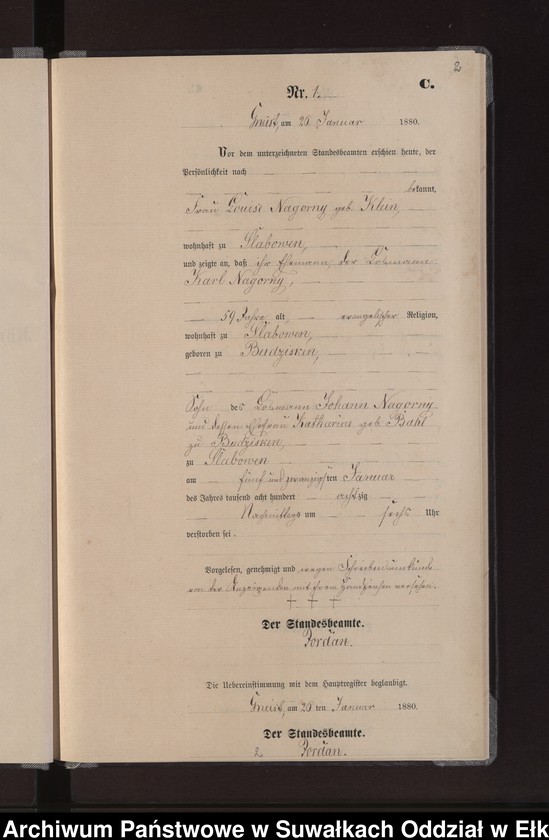 2
C.
Nr. 1.
Gneist, am 26 Januar 1880.
Vor dem unterzeichneten Standesbeamten erschien heute, der
Persönlichkeit nach
bekannt,
Frau Louise Nagorny geb. Klein,
wohnhaft zu Slabowen,
und zeigte an, daß ihr Ehemann, der Losmann
Karl Nagorny,
59 Jahre alt, evangelischer Religion,
wohnhaft zu Slabowen,
geboren zu Budzisken,
Sohn des Losmann Johann Nagorny
und dessen Ehefrau Katharine geb. Bahl
zu Budzisken,
zu Slabowen
am fünf und zwanzigsten Januar
des Jahres tausend acht hundert achtzig
Nachmittags um sechs Uhr
verstorben sei.
Vorgelesen, genehmigt und wegen Schreibensunkunde
von der Anzeigenden mit ihrem Handzeichen versehen.
+ + +
Der Standesbeamte.
Jordan.
Die Uebereinstimmung mit dem Hauptregister beglaubigt.
Gneist, am 26 ten Januar 1880.
Der Standesbeamte.
2 Jordan.
Archiwum Państwowe w Suwałkach Oddział w Ełk